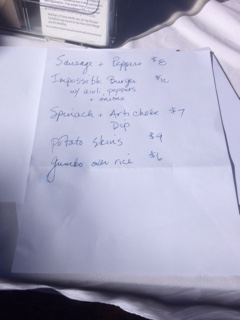 Sausage + Peppers $8
Impossible Burger
w/ aioli, peppers
+ onions
Spinach + Artichoke $7
Dip
potato skins $9
Jumbo over rice $6